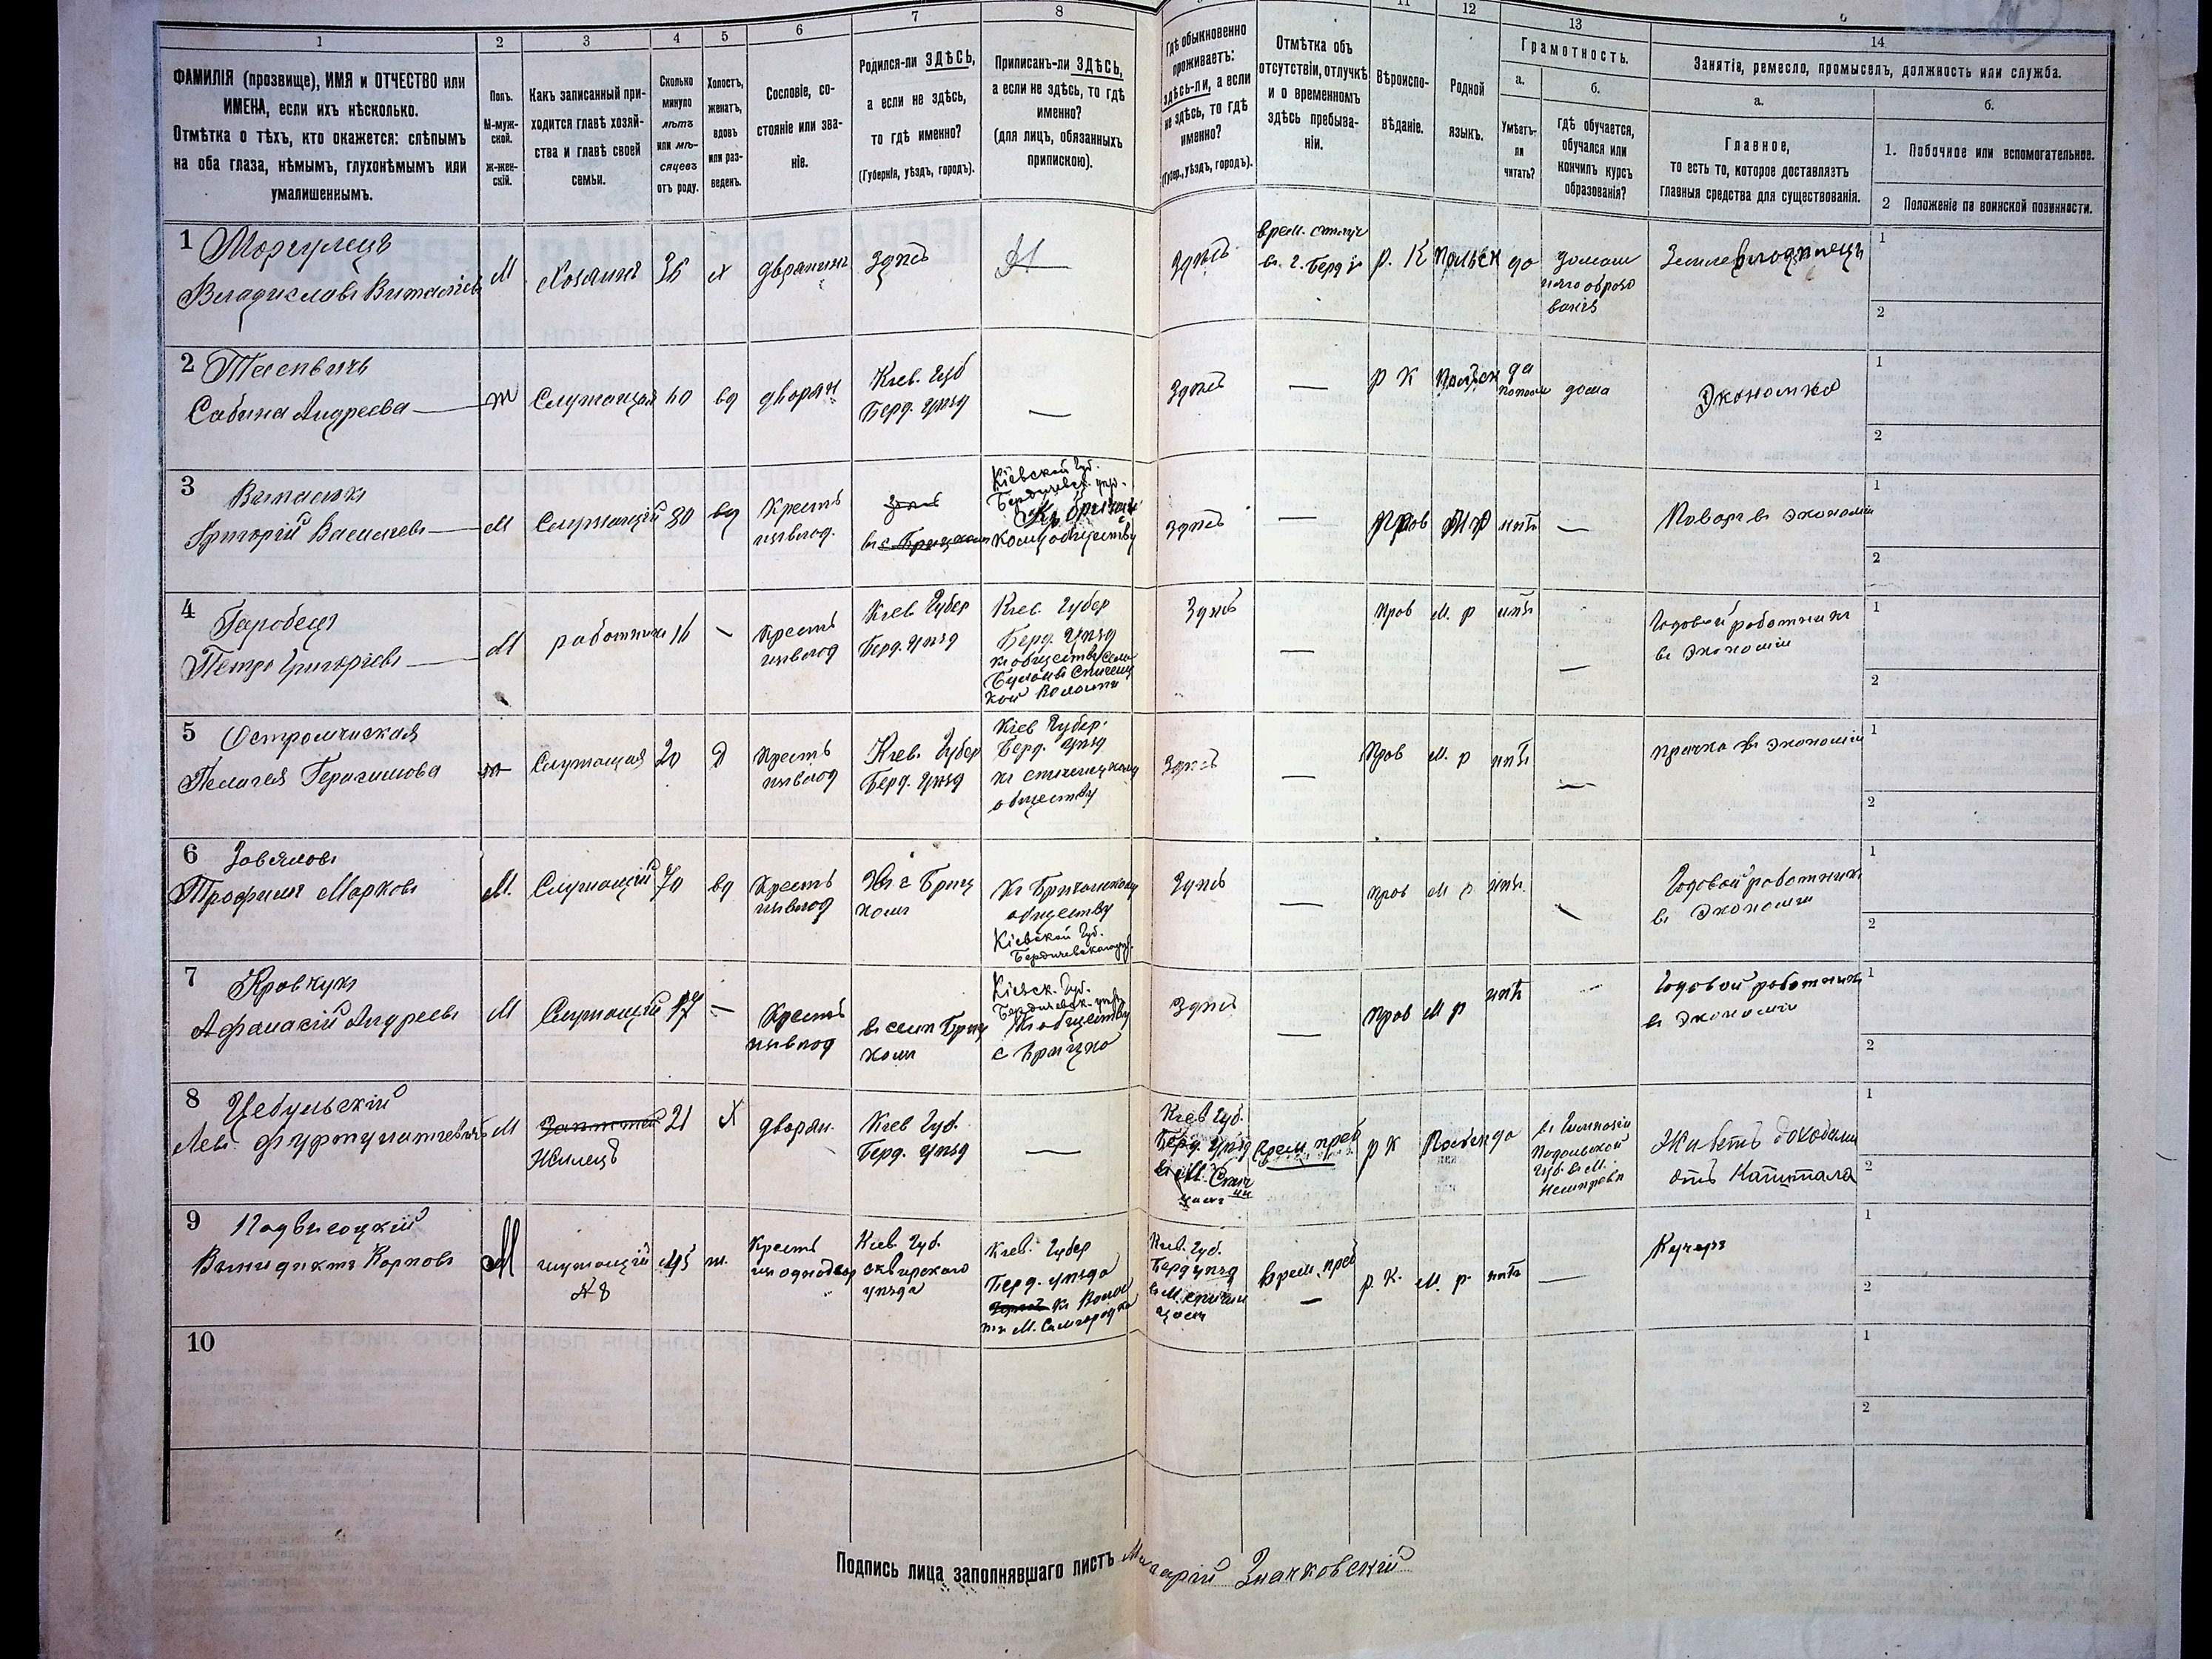 1
2
3
4
5
6
7
8
11
12
13
14
ФАМИЛІЯ (прозвище), ИМЯ и ОТЧЕСТВО или
ИМЕНА, если ихъ нѣсколько.
Отмѣтка о тѣхъ, кто окажется: слѣпымъ
на оба глаза, нѣмымъ, глухонѣмымъ или
умалишеннымъ.
Полъ.
М-муж-
ской.
ж-жен-
скій.
Какъ записанный при-
ходится главѣ хозяй-
ства и главѣ своей
семьи.
Сколько
минуло
лѣтъ
или мѣ-
сяцевъ
отъ роду.
Холостъ,
женатъ,
вдовъ
или раз-
веденъ.
Сословіе, со-
стояніе или зва-
ніе.
Родился-ли ЗДѢСЬ,
а если не здѣсь,
то гдѣ именно?
(Губернія, уѣздъ, городъ).
Приписанъ-ли ЗДѢСЬ,
а если не здѣсь, то гдѣ
именно?
(для лицъ, обязанныхъ
припискою).
Гдѣ обыкновенно
проживаетъ:
здѣсь-ли, а если
не здѣсь, то гдѣ
именно?
(Губер., уѣздъ, городъ).
Отмѣтка объ
отсутствіи, отлучкѣ
и о временномъ
здѣсь пребыва-
ніи.
Вѣроиспо-
вѣданіе.
Родной
языкъ.
Грамотность.
а.
Умѣетъ-
ли
читать?
б.
Гдѣ обучается,
обучался или
кончилъ курсъ
образованія?
Занятіе, ремесло, промыселъ, должность или служба.
а.
Главное,
то есть то, которое доставляетъ
главныя средства для существованія.
б.
1. Побочное или вспомогательное.
2 Положеніе по воинской повинности.
1
Владиславъ Виталіевъ
М
Хозяинъ
36
х
дворянинъ
Здѣсь
Здѣсь
врем. отлуч
въ г. Берд
р. К
Польск
да
домаш
няго образо
ванія
Землевладѣлецъ
1
2
2
Сабина Андреева
ж
Служащая
60
вд
дворян
Кіев. Губ
Берд. уѣзд
—
Здѣсь
—
р К
Польск
да
дома
Экономка
1
2
3
Григорій Васильевъ
М
Служащій
30
вд
Крестъ
Кіевской Губ.
Бердичевск. уѣз.
кому обществу
Здѣсь
—
Пров
М р
нѣтъ
—
Поваръ въ Экономіи
1
2
4
Гаробецъ
Петръ Григоріевъ
М
работникъ
16
—
Крестъ
Кіев Губер
Берд. уѣзд
Кіев. Губер
Берд. уѣзд
къ обществу Села
кой Волости
Здѣсь
—
Пров
М. р
нѣтъ
—
Годовой работникъ
въ Экономіи
1
2
5
Пелагея Герасимова
ж
Служащая
20
Д
Крестъ
Кіев. Губер
Берд. уѣзд
Кіев Губер.
Берд. уѣзд
обществу
Здѣсь
—
Пров
М. р
нѣтъ
—
прачка въ Экономіи
1
2
6
Завяловъ
Трофимъ Марковъ
М.
Служащій
70
вд
Крестъ
обществу
Кіевской Губ.
Бердичевскаго у.
Здѣсь
—
пров
М р
нѣтъ.
Годовой работникъ
въ Экономіи
1
2
7
Кравчукъ
Афанасій Андреевъ
М
Служащій
17
—
Крестъ
Кіевск. Губ.
Бердичевск. уѣз
Къ обществу
Здѣсь
—
пров
М р
нѣтъ
—
Годовой работникъ
въ Экономіи
1
2
8
Цебульскій
М
Жилецъ
21
Х
дворян.
Кіев Губ.
Берд. уѣзд
—
Кіев Губ.
Берд. уѣзд
врем преб
р К
да
въ Гимназіи
Подольской
Губ. въ М.
Немировѣ
Живетъ доходами
отъ Капитала
1
2
9
Подвысоцкій
Венидиктъ Карповъ
М
служащій
№ 8
45
ж.
Крестъ
изъ однодвор
Кіев. Губ.
Сквирскаго
уѣзда
Кіев. Губер
Берд. уѣзда
М. Самгородка
Кіев. Губ.
Берд уѣзд
врем. преб
—
р. К.
М. р.
нѣтъ
—
Кучеръ
1
2
10
1
2
Подпись лица заполнявшаго листъ Макарій Знаковскій